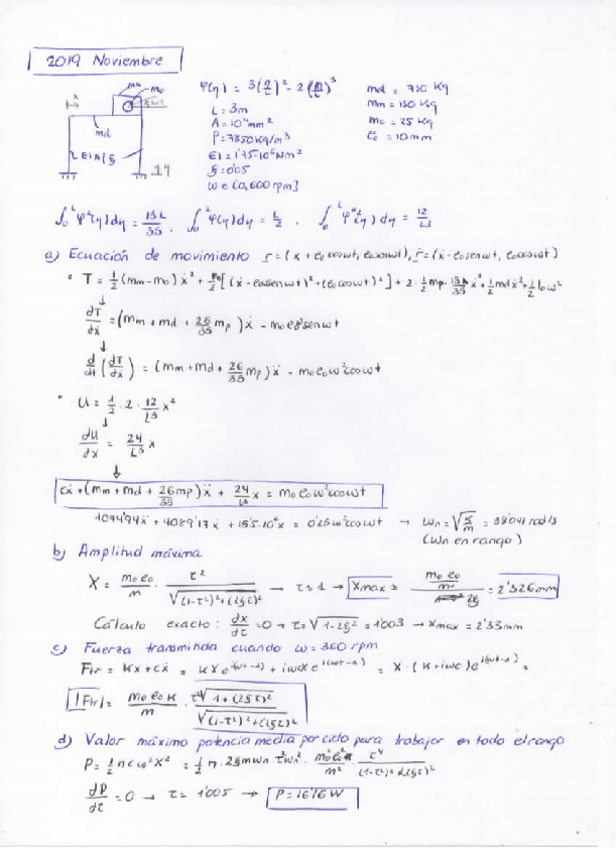 2019 Noviembre
φ(η) = 3(η/L)² - 2(η/L)³
md = 730 Kg
L = 3m
Mm = 130 Kg
A = 10⁴ mm²
m₀ = 25 Kg
ρ = 7850 Kg/m³
e₀ = 10mm
EI = 1'75·10⁶ Nm²
ξ = 0'05
w ∈ [0,600 rpm]
x
mm
m₀
md
L EI A ρ ξ
∫₀ᴸ φ²(η)dη = 13L/35, ∫₀ᴸ φ(η)dη = L/2, ∫₀ᴸ φ''²(η)dη = 12/L³
a) Ecuación de movimiento r = (x + e₀coswt, e₀senwt), ṙ = (ẋ - e₀senwt, e₀coswt)
· T = 1/2 (mm-m₀)ẋ² + m₀/2 [(ẋ - e₀senwt)² + (e₀coswt)²] + 2·1/2 mp·13/35 ẋ² + 1/2 mdẋ² + 1/2 I₀w²
↓
dT/dẋ = (mm + md + 26/35 mp)ẋ - m₀e₀senwt
↓
d/dt (dT/dẋ) = (mm + md + 26/35 mp)ẍ - m₀e₀w²coswt
· U = 1/2 · 2 · 12/L³ x²
↓
dU/dx = 24/L³ x
↓
cẋ + (mm + md + 26mp/35)ẍ + 24/L³ x = m₀e₀w²coswt
1074'94ẍ + 4089'17ẋ + 1'55·10⁶x = 0'25w²coswt → wn = √(K/m) = 38'041 rad/s
(wn en rango)
b) Amplitud máxima
X = m₀e₀/m · τ²/√((1-τ²)²+(2ξτ)²) → τ=1 → Xmax = (m₀e₀/m)/2ξ = 2'326mm
Cálculo exacto: dx/dτ = 0 → τ = √(1-2ξ²) = 1'003 → xmax = 2'33mm
c) Fuerza transmitida cuando w = 360 rpm
Ftr = Kx + cẋ = KXe^(j(wt-α)) + iwαXe^(i(wt-α)) = X·(K+iwc)e^(j(wt-α)) =
|Ftr| = m₀e₀K/m · τ²√(1+(2ξτ)²)/√((1-τ²)²+(2ξτ)²)
d) Valor máximo potencia media por ciclo para trabajar en todo el rango
P = 1/2 n c w²X² = 1/2 n·2ξmwn τ²wn² · m₀²e₀²/m² · τ⁴/((1-τ²)²+(2ξτ)²)
dP/dτ = 0 → τ = 1'005 → P = 16'76 W